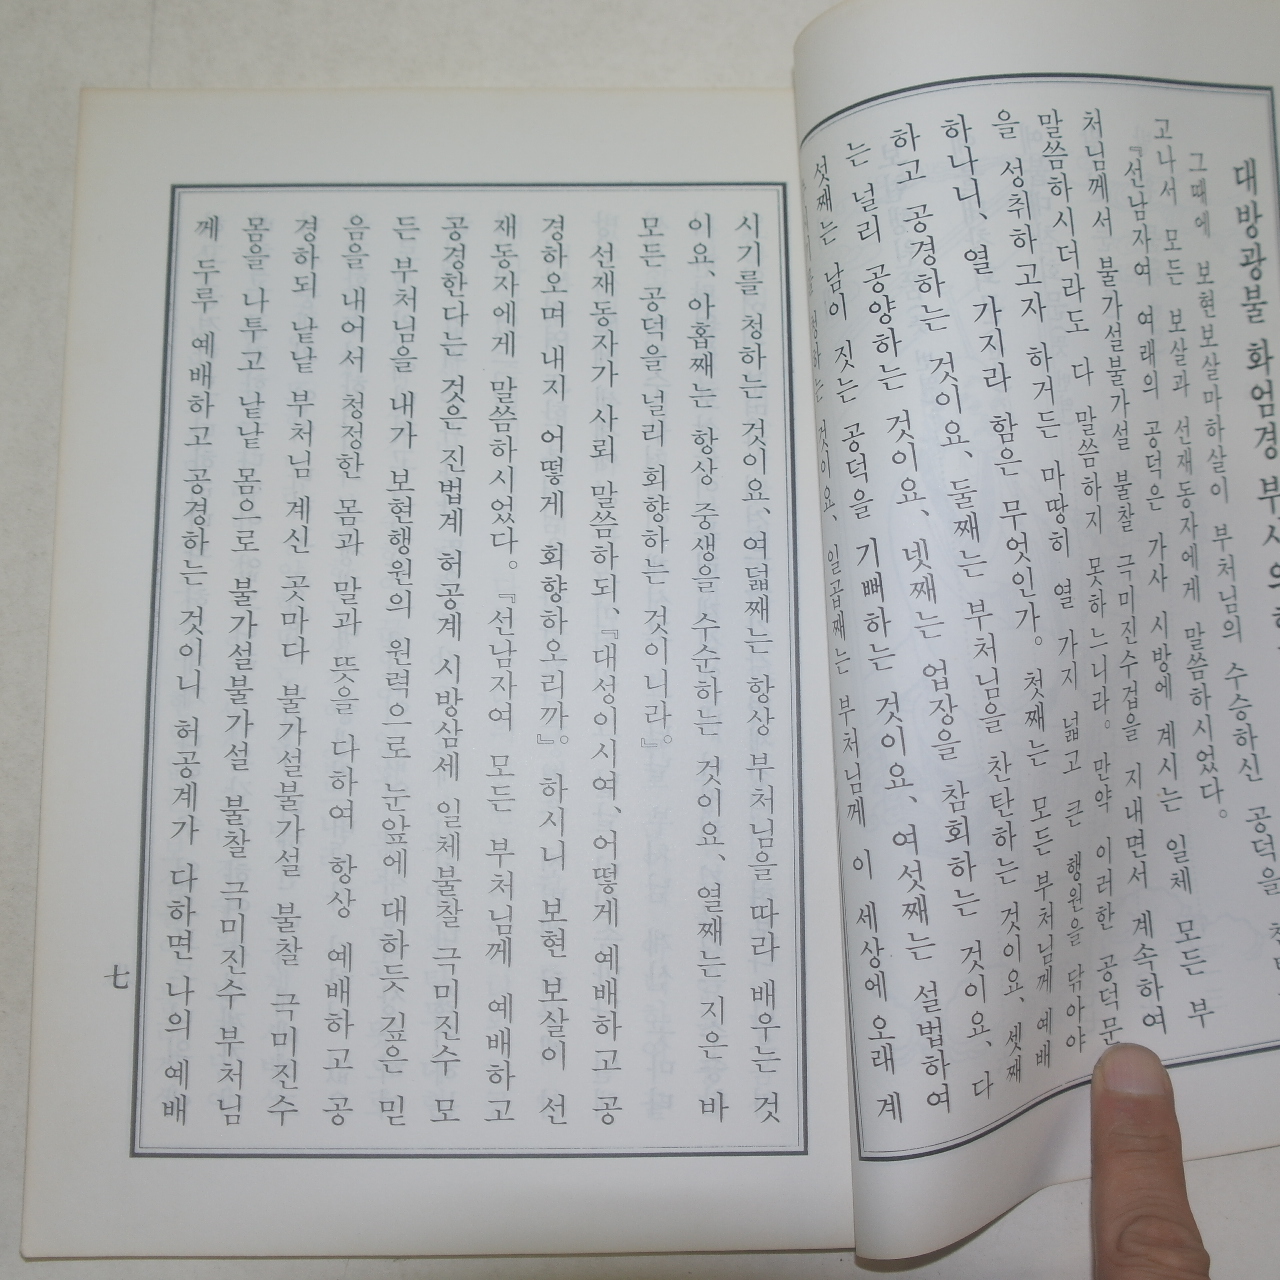 대방광불 화엄경 부사의
그때에 보현보살마하살이 부처님의 수승하신 공덕을
고나서 모든 보살과 선재동자에게 말씀하시었다。
『선남자여 여래의 공덕은 가사 시방에 계시는 일체 모든 부
처님께서 불가설불가설 불찰 극미진수겁을 지내면서 계속하여
말씀하시더라도 다 말씀하지 못하느니라。 만약 이러한 공덕문
을 성취하고자 하거든 마땅히 열 가지 넓고 큰 행원을 닦아야
하나니、열 가지라 함은 무엇인가。 첫째는 모든 부처님께 예배
하고 공경하는 것이요、둘째는 부처님을 찬탄하는 것이요、셋째
는 널리 공양하는 것이요、넷째는 업장을 참회하는 것이요、다
섯째는 남이 짓는 공덕을 기뻐하는 것이요、여섯째는 설법하여
것이요、일곱째는 부처님께 이 세상에 오래 계
시기를 청하는 것이요、여덟째는 항상 부처님을 따라 배우는 것
이요、아홉째는 항상 중생을 수순하는 것이요、열째는 지은 바
모든 공덕을 널리 회향하는 것이니라。』
선재동자가 사뢰 말씀하되、『대성이시여、어떻게 예배하고 공
경하오며 내지 어떻게 회향하오리까。』 하시니 보현 보살이 선
재동자에게 말씀하시었다。『선남자여 모든 부처님께 예배하고
공경한다는 것은 진법계 허공계 시방삼세 일체불찰 극미진수 모
든 부처님을 내가 보현행원의 원력으로 눈앞에 대하듯 깊은 믿
음을 내어서 청정한 몸과 말과 뜻을 다하여 항상 예배하고 공
경하되 낱낱 부처님 계신 곳마다 불가설불가설 불찰 극미진수
몸을 나투고 낱낱 몸으로 불가설불가설 불찰 극미진수 부처님
께 두루 예배하고 공경하는 것이니 허공계가 다하면 나의 예배
七